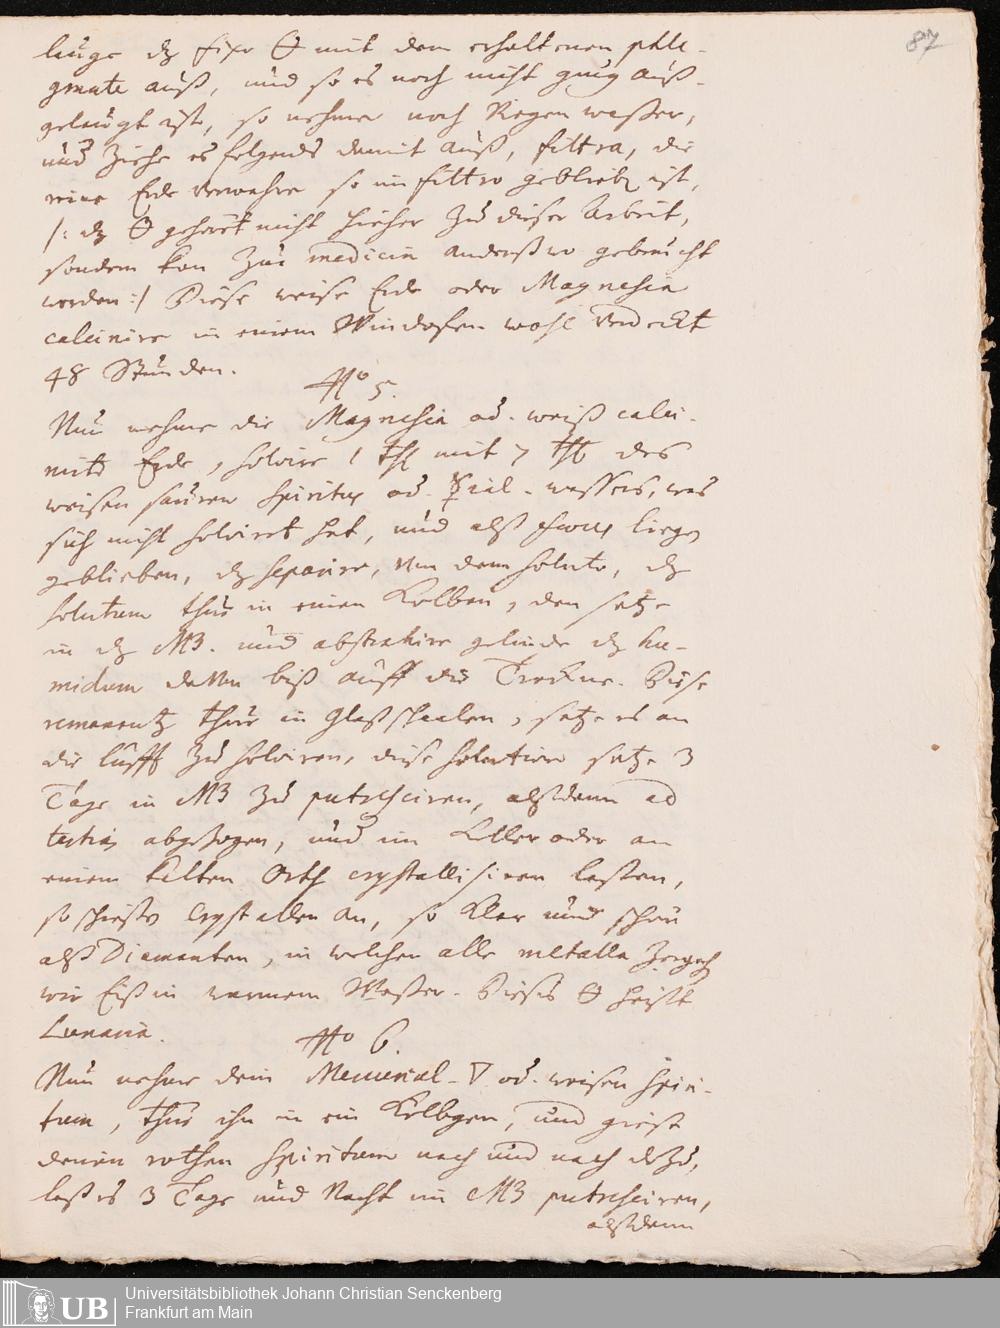 87
lauge dz fixe 🜔 mit dem erhaltenen phle-
gmate auß, und so es noch nicht gnug auß-
gelaugt ist, so nehme noch Regen waßer,
und ziehe es folgends damit auß, filtra, die
reine Erde verwahre so im filtro gebliebn ist,
/: dz 🜔 gehört nicht hieher zu dieser Arbeit,
sondern kan zur medicin anderßwo gebraucht
werden :/ Diese weise Erde oder Magnesia
calcinire in einem Windofen wohl verdeckt
48 Stunden.
No 5.
Nun nehme die Magnesia od. weiß calci-
nirte Erde, solvire 1 thl mit 7 thl des
weisen sauren Spiritus od. ☿rial. wassers, was
sich nicht solviret hat, und alß faeces liegn
geblieben, dz separire, von dem soluto, dz
solutum thue in einen Kolben, den setze
in dz MB. und abstrahire gelinde dz hu-
midum davon biß auff die Trockne. Diese
remanentz thue in Glaßschaalen, setze es an
die lufft zu solviren, diese solution setze 3
Tage in MB zu putresciren, alßdann ad
tertias abgezogen, und im Keller oder an
einem kalten Orth crystallisiren laßen,
so schießen Crystallen an, so klar und schön
alß Diamanten, in welchen alle metalla zergehn
wie Eiß in warmem Waßer. Dieses 🜔 heist
Lunaria.
No 6.
Nun nehme dein Mercurial-▽ od. weisen Spiri-
tum, thue ihn in ein Kölbgen, und giese
deinen rothen Spiritum nach und nach dazu,
laß es 3 Tage und Nacht im MB putresciren,
alßdann
UB
Universitätsbibliothek Johann Christian Senckenberg
Frankfurt am Main